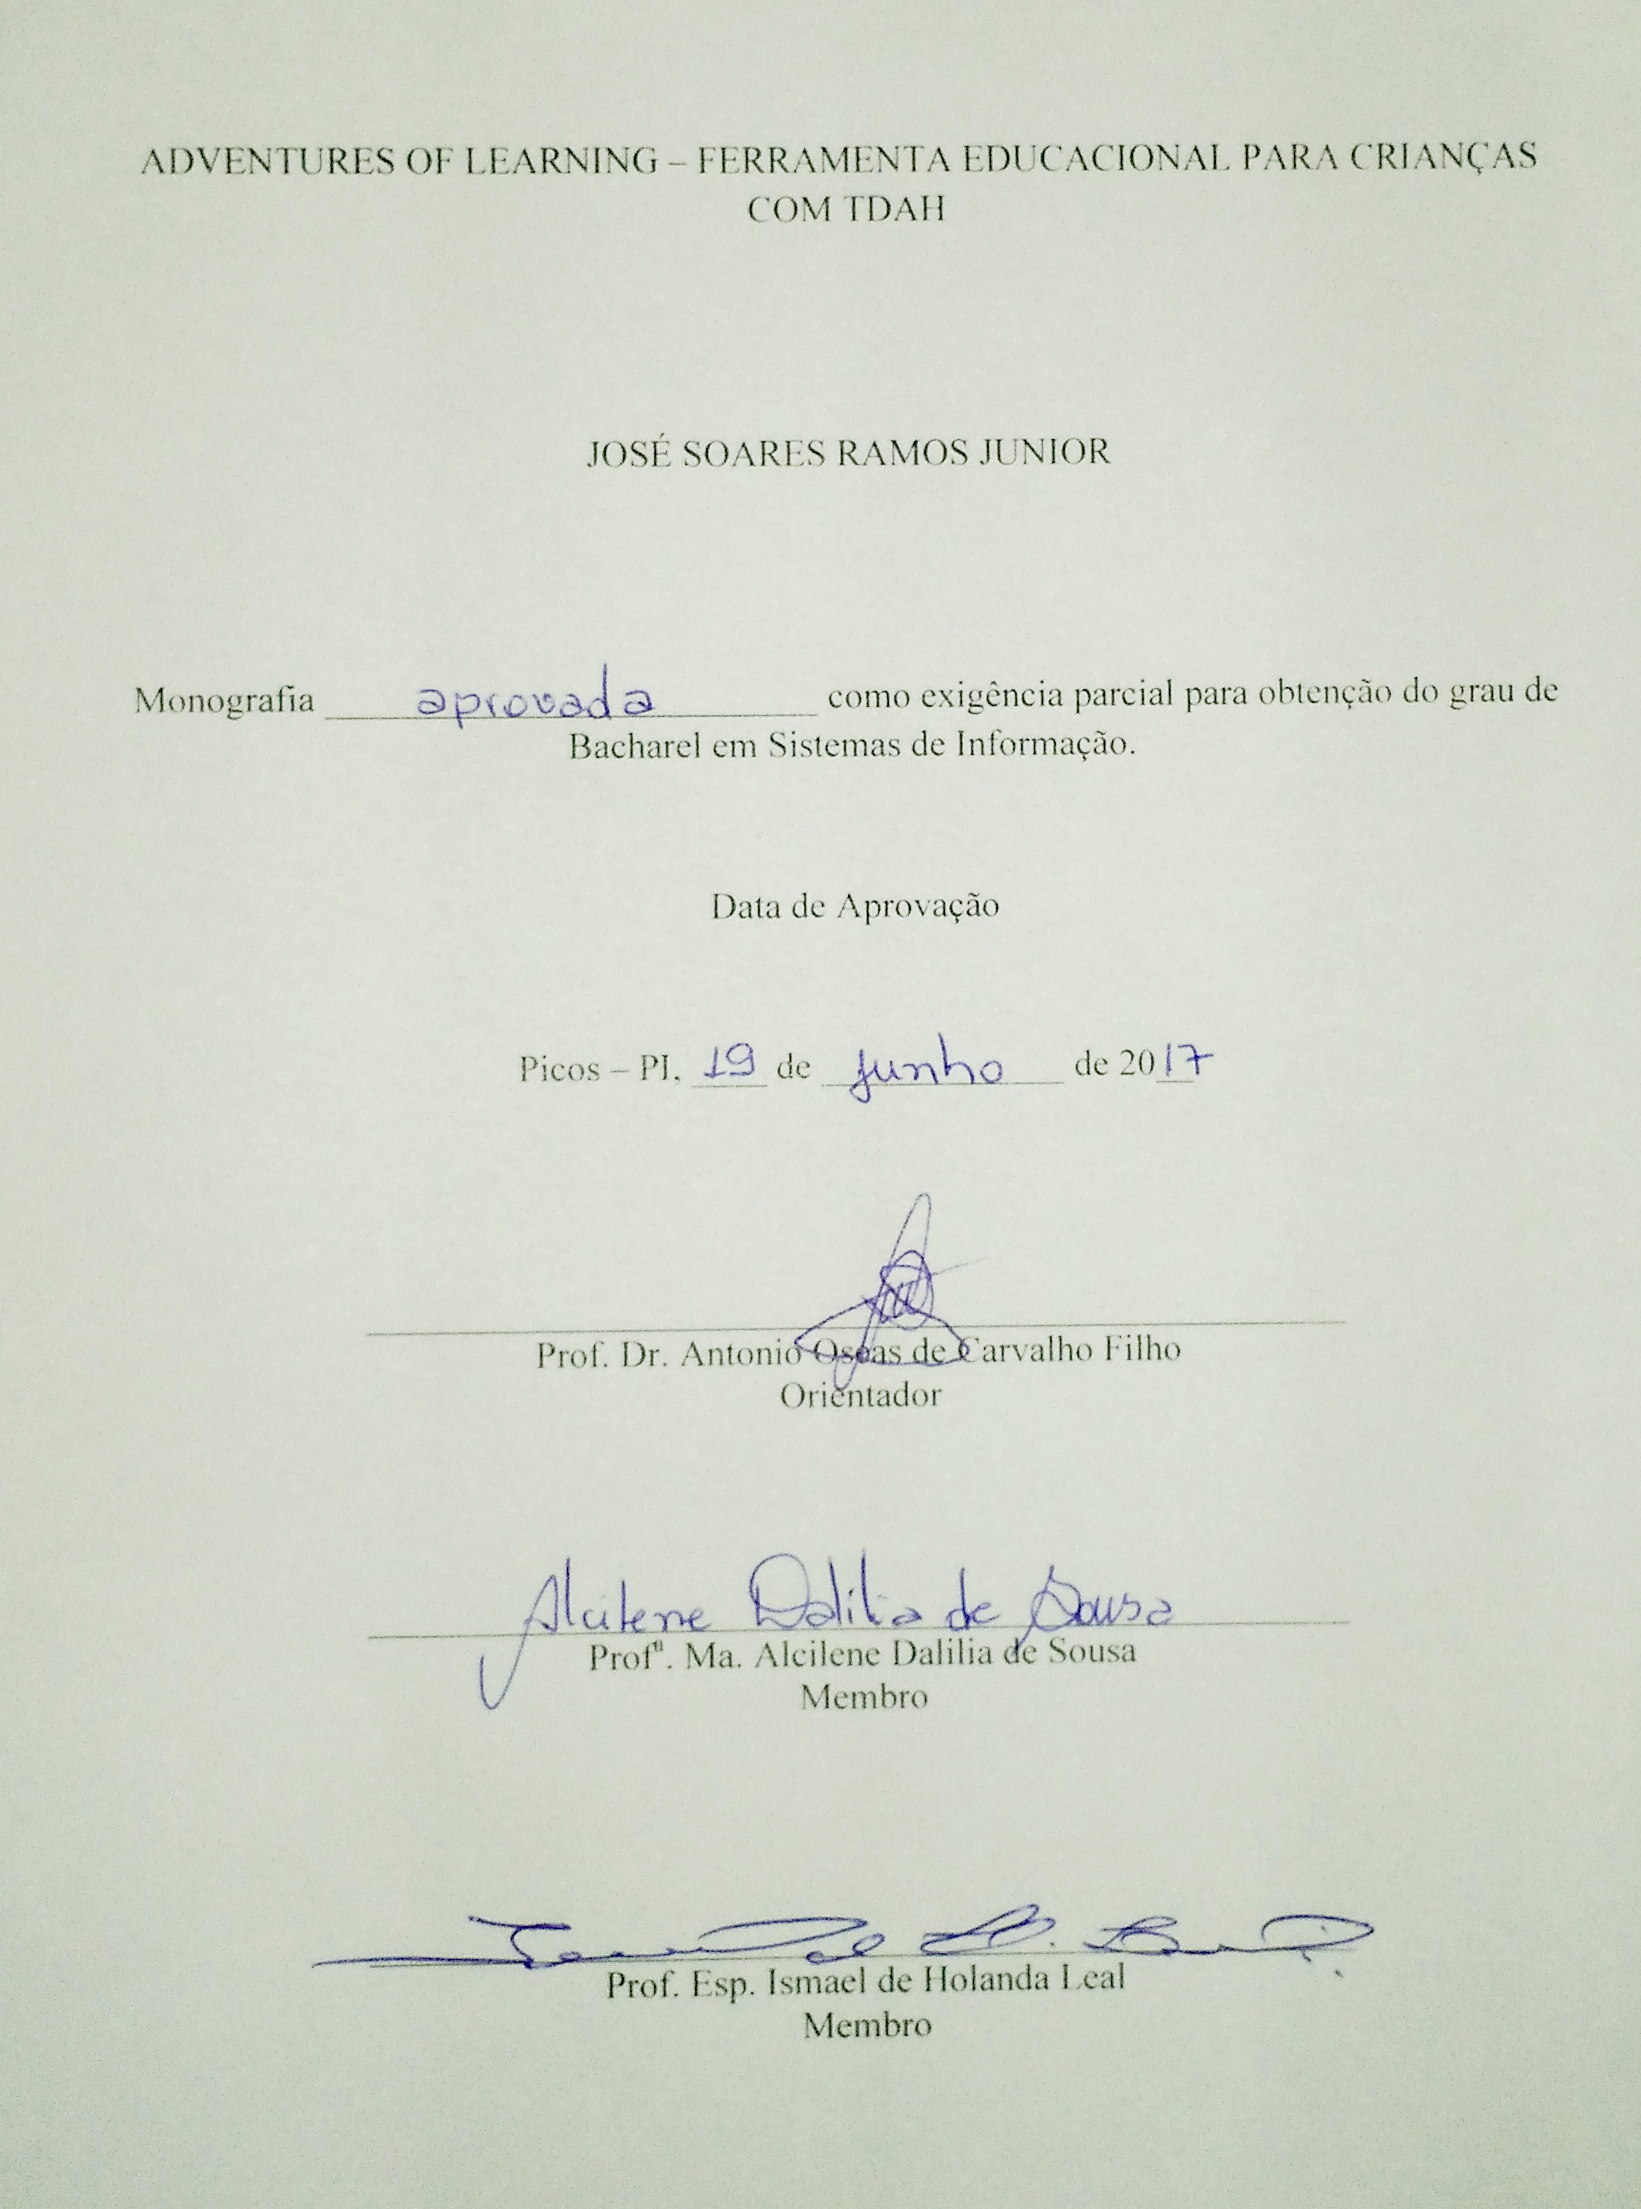 ADVENTURES OF LEARNING – FERRAMENTA EDUCACIONAL PARA CRIANÇAS
COM TDAH
JOSÉ SOARES RAMOS JUNIOR
Monografia aprovada como exigência parcial para obtenção do grau de
Bacharel em Sistemas de Informação.
Data de Aprovação
Picos – PI, 19 de junho de 2017
Prof. Dr. Antonio Oseas de Carvalho Filho
Orientador
Alcilene Dalilia de Sousa
Profª. Ma. Alcilene Dalilia de Sousa
Membro
Prof. Esp. Ismael de Holanda Leal
Membro